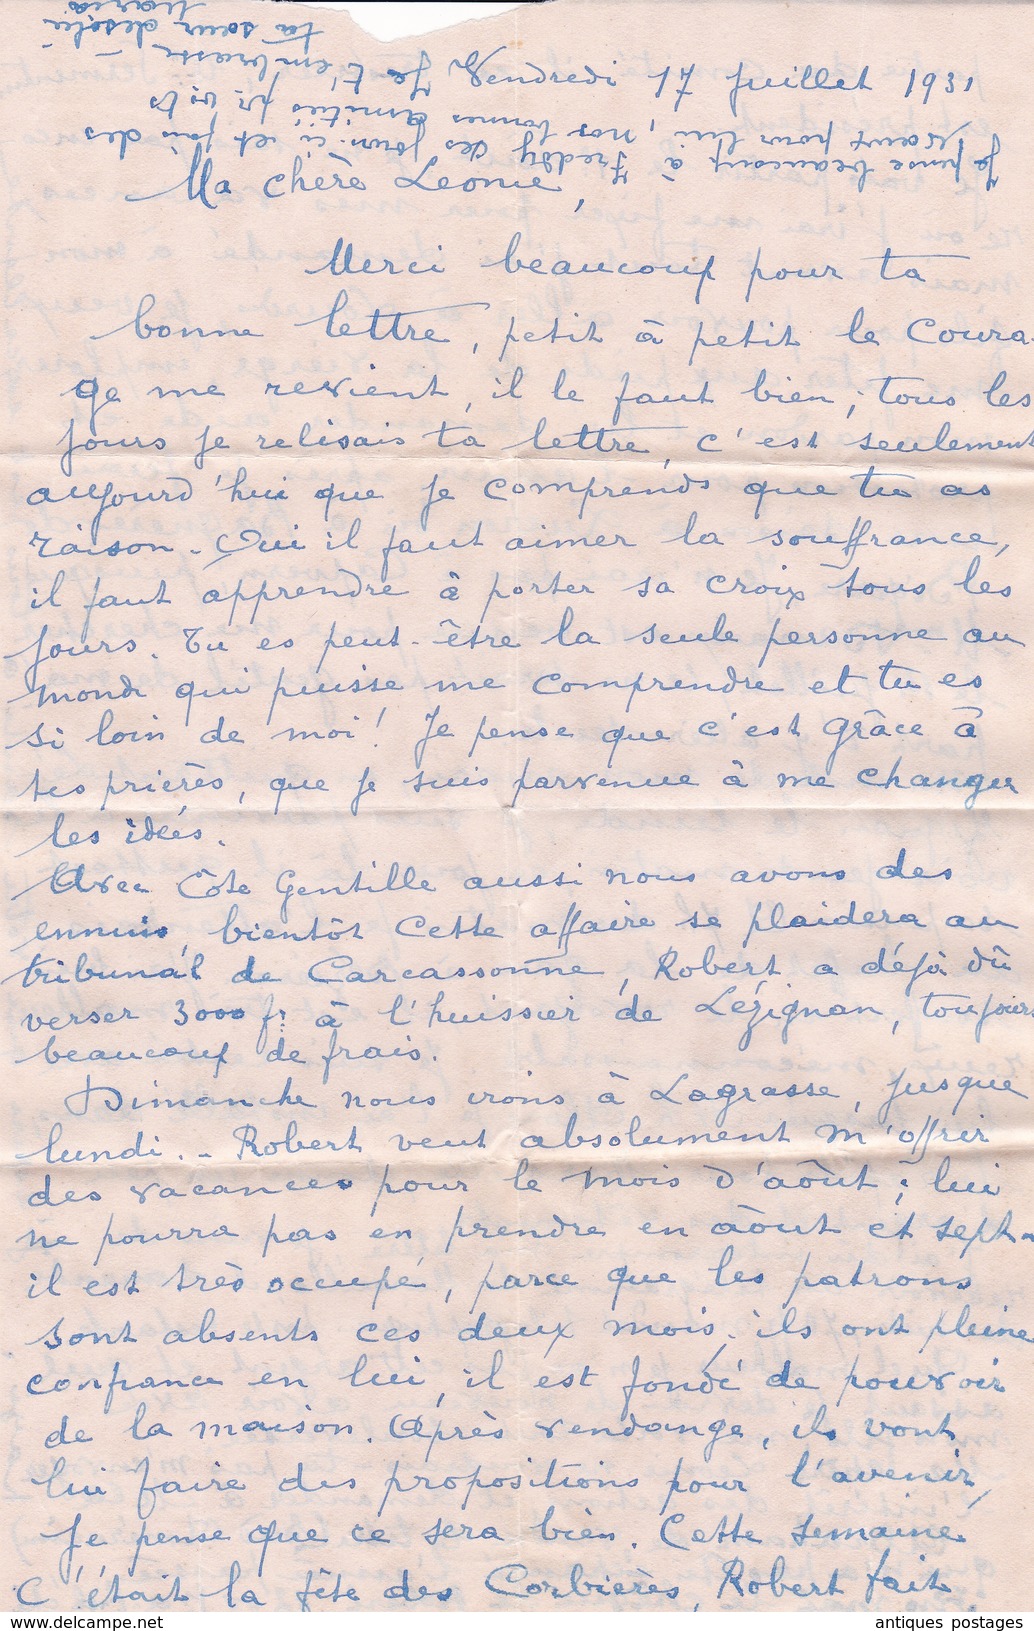 Vendredi 17 Juillet 1931
Ma chère Leonie,
Merci beaucoup pour ta
bonne lettre, petit à petit le coura-
ge me revient, il le faut bien; tous les
jours je relisais ta lettre, c'est seulement
aujourd'hui que je comprends que tu as
raison. Oui il faut aimer la souffrance,
il faut apprendre à porter sa croix tous les
jours. Tu es peut-être la seule personne au
monde qui puisse me comprendre et tu es
si loin de moi! Je pense que c'est grâce à
tes prières, que je suis parvenue à me changer
les idées.
Avec Côte Gentille aussi nous avons des
ennuis, bientôt cette affaire se plaidera au
tribunal de Carcassonne, Robert a déjà dû
verser 3000 fr à l'huissier de Lézignan, toujours
beaucoup de frais.
Dimanche nous irons à Lagrasse, jusque
lundi. - Robert veut absolument m'offrir
des vacances pour le mois d'aôut; lui
ne pourra pas en prendre en aôut et sept.
il est très occupé, parce que les patrons
sont absents ces deux mois, ils ont pleine
confiance en lui, il est fondé de pouvoir
de la maison. Après vendange, ils vont
lui faire des propositions pour l'avenir,
Je pense que ce sera bien. Cette semaine
C'était la fête des Corbières, Robert fait
Je pense beaucoup à Freddy ces jours-ci et fais des
vœux pour lui, nos bonnes amitiés pr. vs ts
Je t'embrasse -
ta sœur desolée
Maria
www.delcampe.net
antiques postages